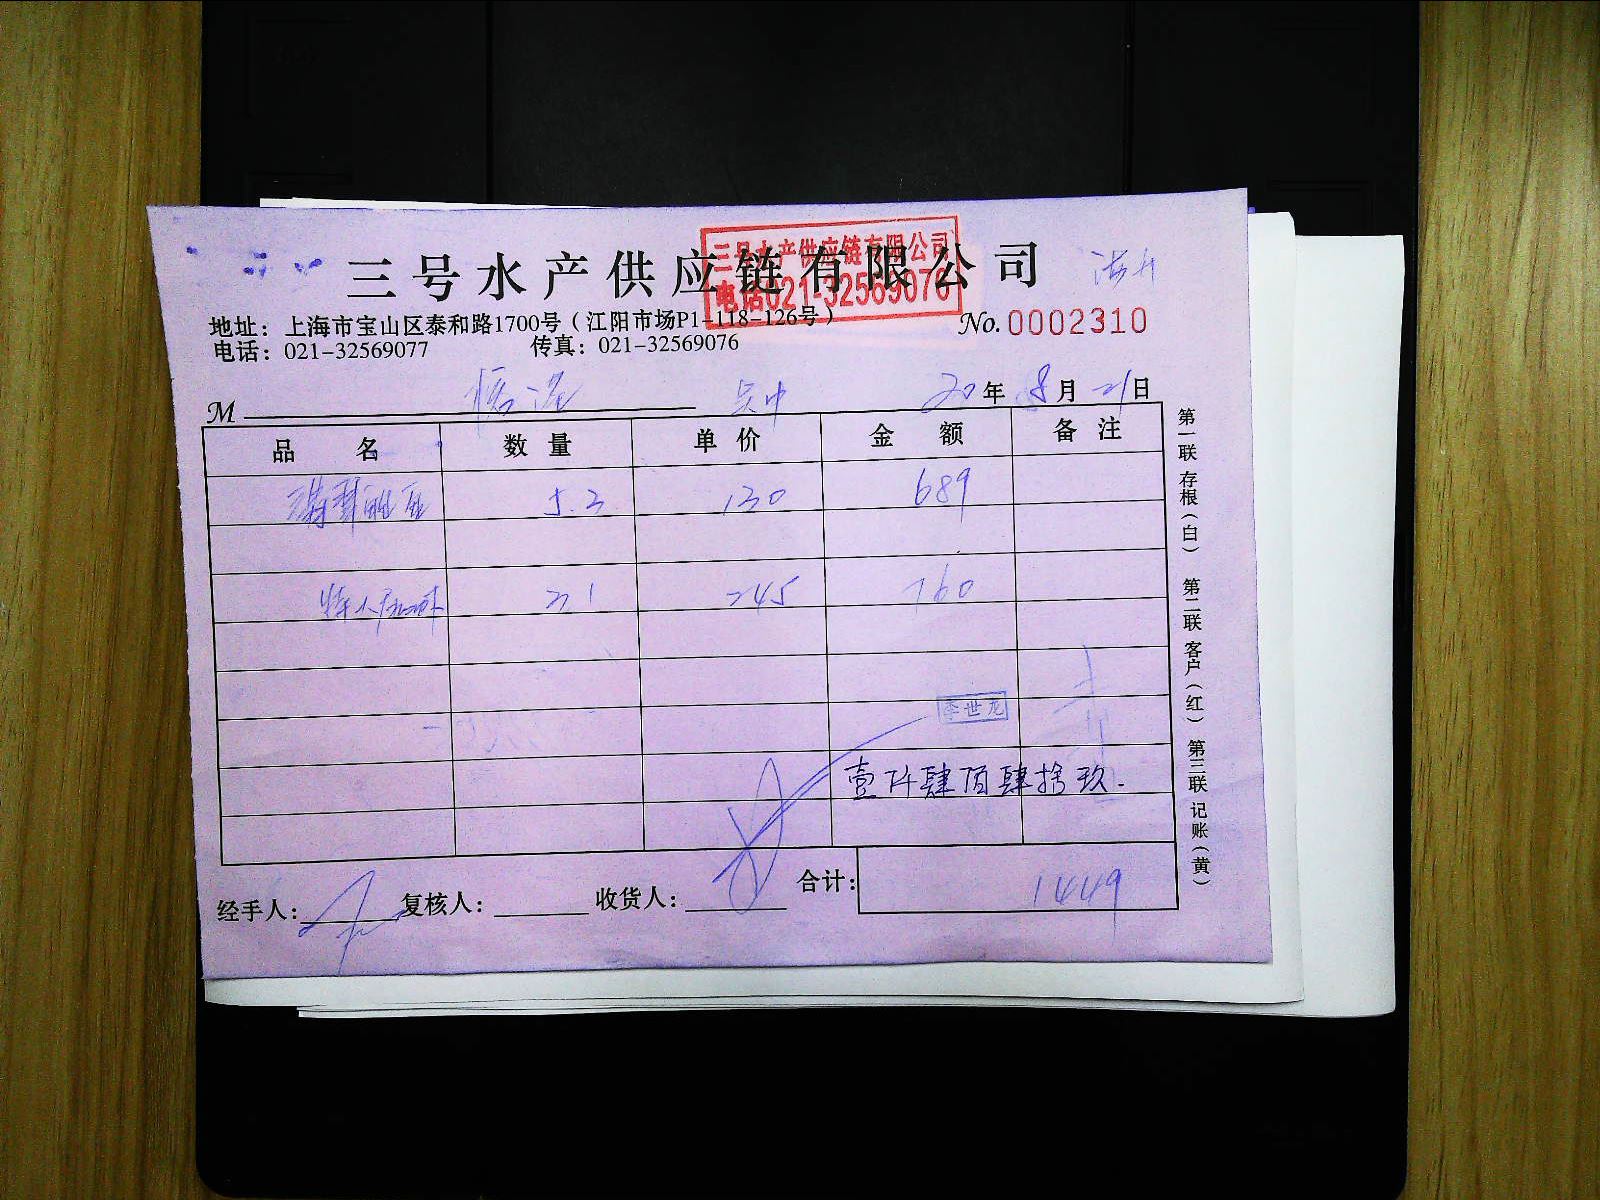 三号水产供应链有限公司
三号水产供应链有限公司
电话021-32569076
地址：上海市宝山区泰和路1700号（江阳市场P1-118-126号）
No. 0002310
电话：021-32569077 传真：021-32569076
M 20年8月21日
品名 数量 单价 金额 备注
5.3 130 689
3.1 245 760
李世龙
壹仟肆佰肆拾玖.
经手人： 复核人： 收货人： 合计： 1449
第一联存根（白） 第二联客户（红） 第三联记账（黄）